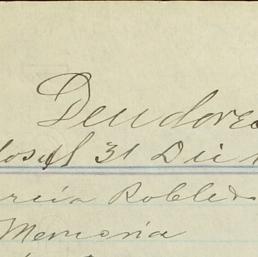 Deudores
31 Di
rcía Robles
Memoria